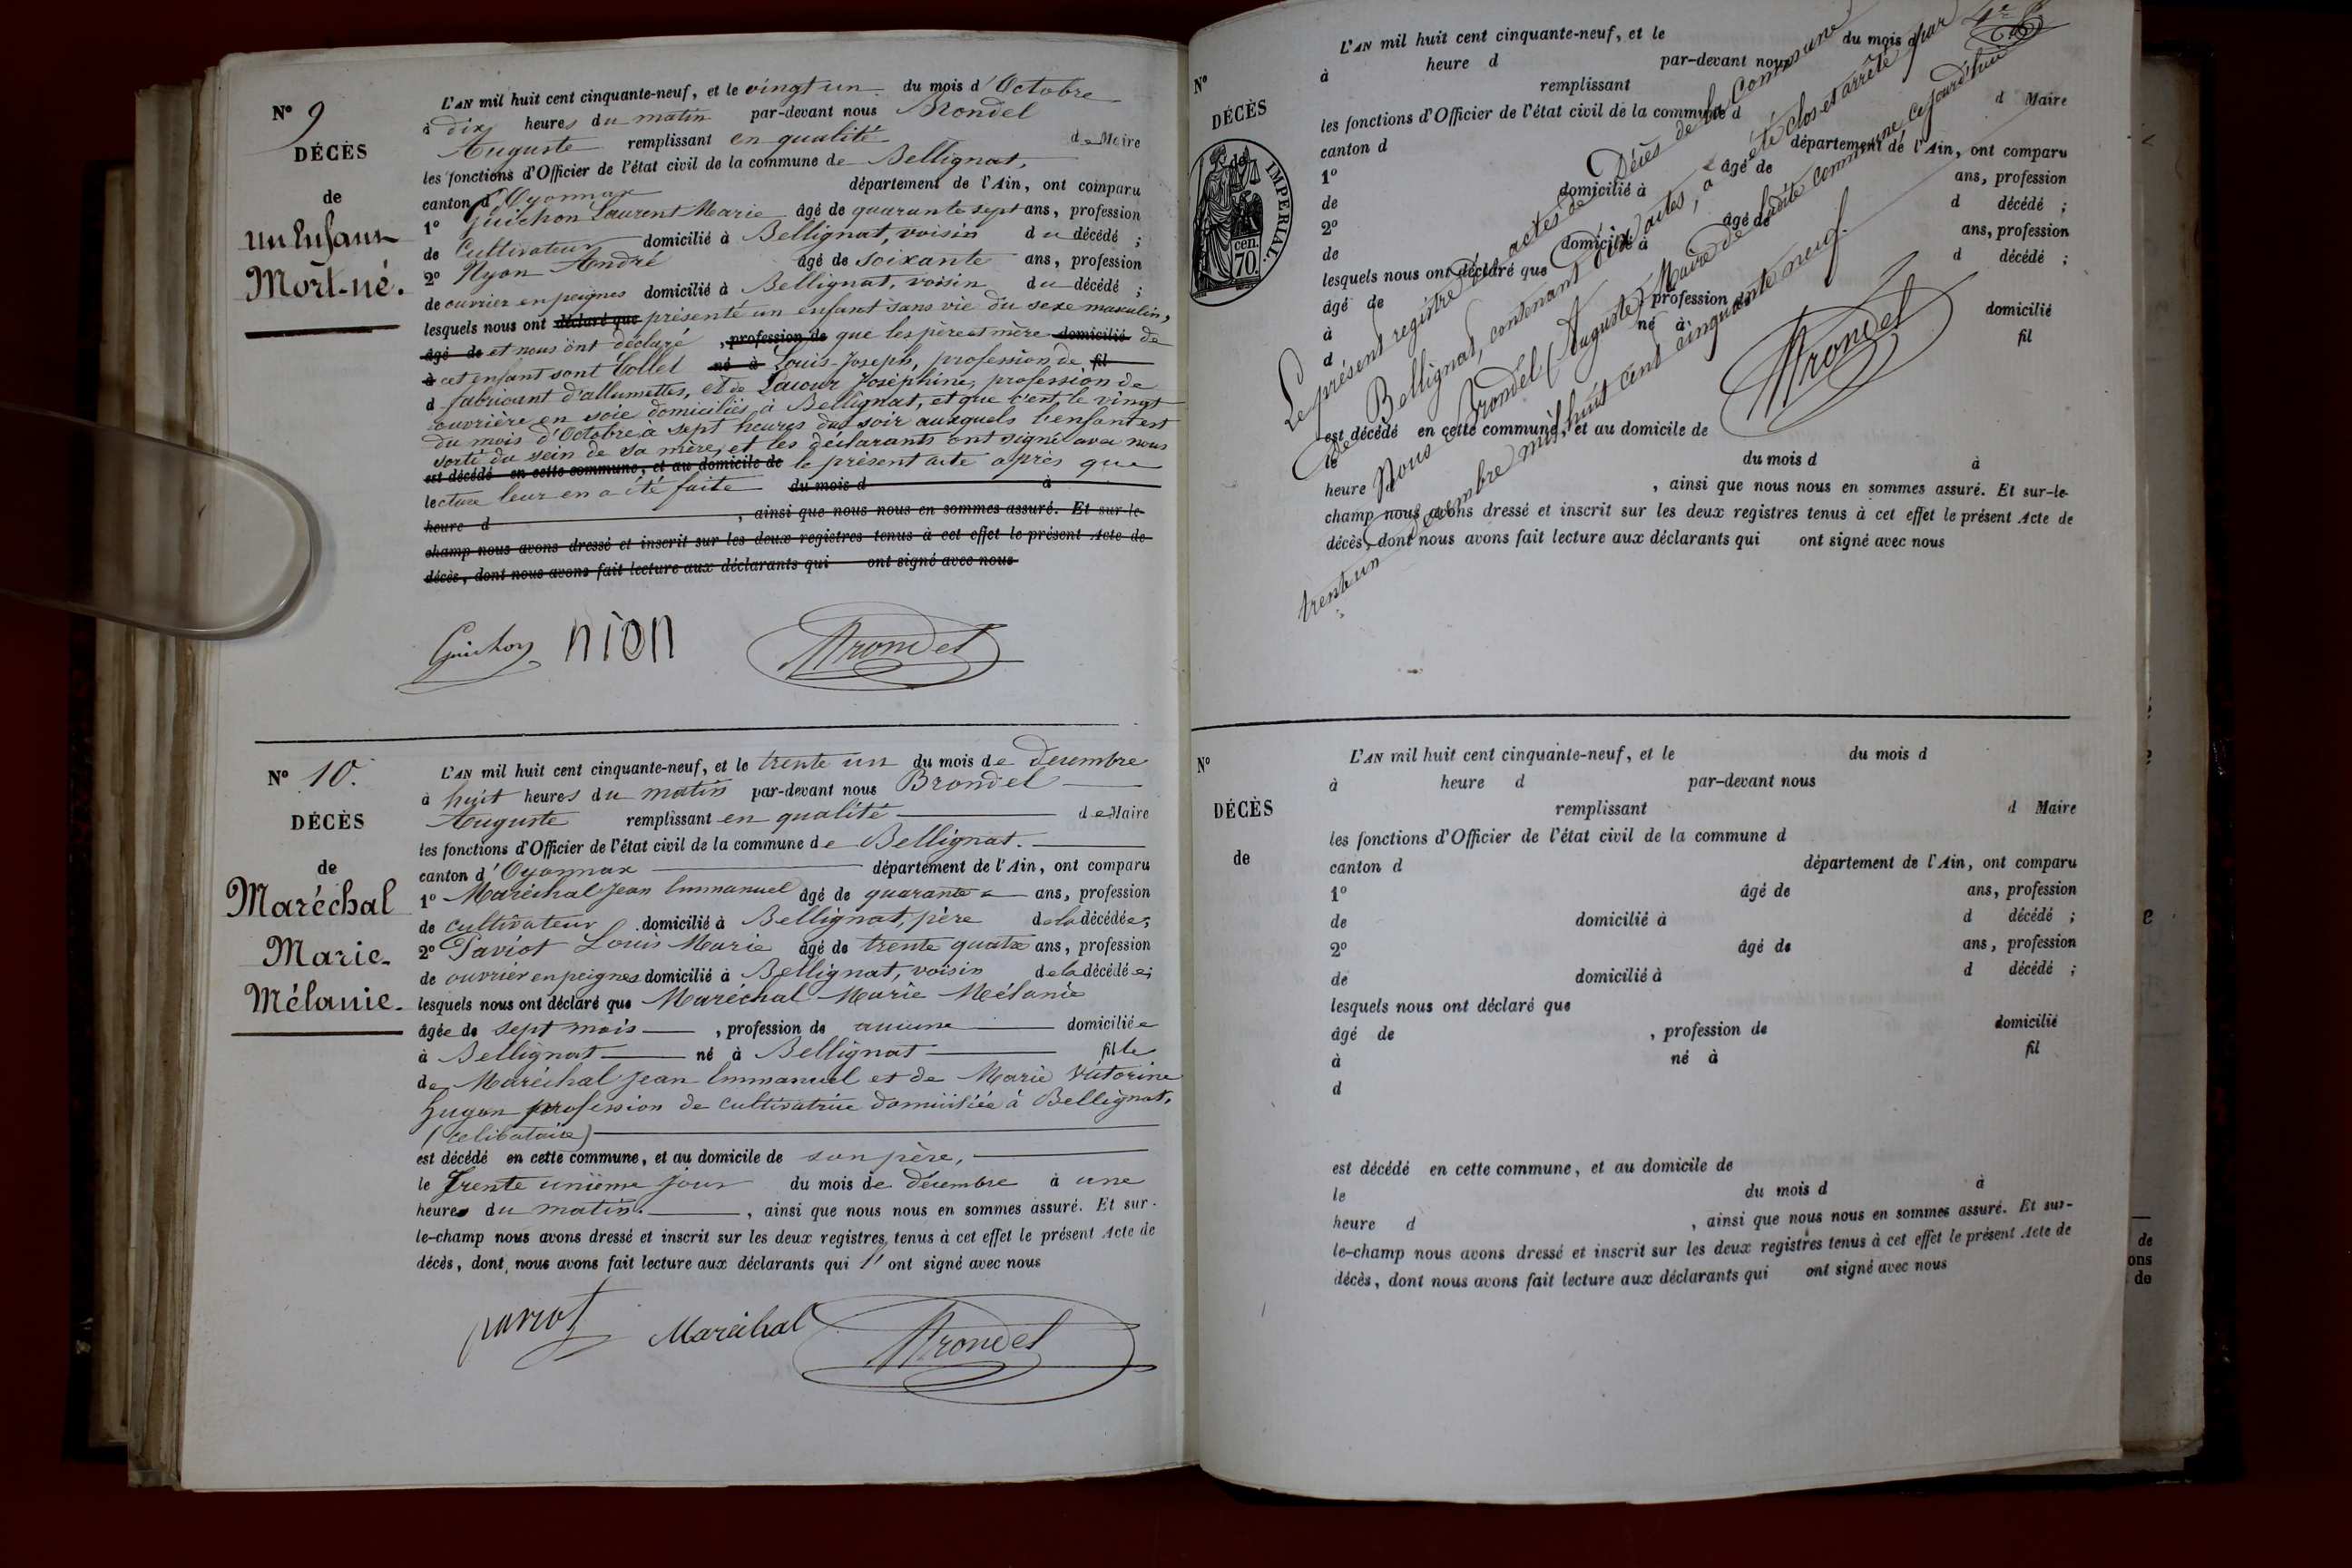 N° 9
DÉCÈS
de
un Enfant
Mort-né.
L'AN mil huit cent cinquante-neuf, et le vingt un du mois d'Octobre
à dix heures du matin par-devant nous Brondel
Auguste remplissant en qualité de Maire
les fonctions d'Officier de l'état civil de la commune de Bellignat,
canton d'Oyonnax département de l'Ain, ont comparu
1° Guichon Laurent Marie âgé de quarante sept ans, profession
de Cultivateur domicilié à Bellignat, voisin du décédé ;
2° Nyon André âgé de soixante ans, profession
de ouvrier en peignes domicilié à Bellignat, voisin du décédé ;
lesquels nous ont déclaré que présenté un enfant sans vie du sexe masculin,
âgé de et nous ont déclaré , profession de que les père et mère domicilié de
à cet enfant sont Collet né à Louis-Joseph, profession de fil
d fabricant d'allumettes, et de Joséphine, profession de
ouvrière en soie domiciliés à Bellignat, et que c'est le vingt
du mois d'Octobre à sept heures du soir auxquels l'enfant est
sorti du sein de sa mère, et les déclarants ont signé avec nous
est décédé en cette commune, et au domicile de le présent acte après que
lecture leur en a été faite du mois d à
heure d , ainsi que nous nous en sommes assuré. Et sur-le-
champ nous avons dressé et inscrit sur les deux registres tenus à cet effet le présent Acte de
décès, dont nous avons fait lecture aux déclarants qui ont signé avec nous
Guichon nion Brondel
N° 10.
DÉCÈS
de
Maréchal
Marie-
Mélanie.
L'AN mil huit cent cinquante-neuf, et le trente un du mois de décembre
à huit heures du matin par-devant nous Brondel
Auguste remplissant en qualité de Maire
les fonctions d'Officier de l'état civil de la commune de Bellignat.
canton d'Oyonnax département de l'Ain, ont comparu
1° Maréchal Jean Emmanuel âgé de quarante ans, profession
de cultivateur domicilié à Bellignat, père de la décédée ;
2° Paviot Louis Marie âgé de trente quatre ans, profession
de ouvrier en peignes domicilié à Bellignat, voisin de la décédée ;
lesquels nous ont déclaré que Maréchal Marie Mélanie
âgée de sept mois , profession de aucune domiciliée
à Bellignat né à Bellignat fille
de Maréchal Jean Emmanuel et de Marie Victorine
Gugon profession de cultivatrice domiciliée à Bellignat,
(célibataire)
est décédé en cette commune, et au domicile de son père,
le Trente unième jour du mois de décembre à une
heure du matin. , ainsi que nous nous en sommes assuré. Et sur-
le-champ nous avons dressé et inscrit sur les deux registres tenus à cet effet le présent Acte de
décès, dont nous avons fait lecture aux déclarants qui l'ont signé avec nous
paviot Maréchal Brondel
N°
DÉCÈS
de
IMPÉRIAL.
cen.
70.
L'AN mil huit cent cinquante-neuf, et le du mois d
à heure d par-devant nous
remplissant d Maire
les fonctions d'Officier de l'état civil de la commune d
canton d département de l'Ain, ont comparu
1° âgé de ans, profession
de domicilié à d décédé ;
2° âgé de ans, profession
de domicilié à d décédé ;
lesquels nous ont déclaré que
âgé de , profession de domicilié
à né à fil
d
est décédé en cette commune, et au domicile de
le du mois d à
heure d , ainsi que nous nous en sommes assuré. Et sur-le-
champ nous avons dressé et inscrit sur les deux registres tenus à cet effet le présent Acte de
décès, dont nous avons fait lecture aux déclarants qui ont signé avec nous
Le présent registre des actes de Décès de la Commune
de Bellignat, contenant dix actes, a été clos et arrêté par
Nous Brondel (Auguste) Maire de ladite commune ce jourd'hui
trente un Décembre mil huit cent cinquante neuf.
Brondel
N°
DÉCÈS
de
L'AN mil huit cent cinquante-neuf, et le du mois d
à heure d par-devant nous
remplissant d Maire
les fonctions d'Officier de l'état civil de la commune d
canton d département de l'Ain, ont comparu
1° âgé de ans, profession
de domicilié à d décédé ;
2° âgé de ans, profession
de domicilié à d décédé ;
lesquels nous ont déclaré que
âgé de , profession de domicilié
à né à fil
d
est décédé en cette commune, et au domicile de
le du mois d à
heure d , ainsi que nous nous en sommes assuré. Et sur-
le-champ nous avons dressé et inscrit sur les deux registres tenus à cet effet le présent Acte de
décès, dont nous avons fait lecture aux déclarants qui ont signé avec nous
de
ons
de